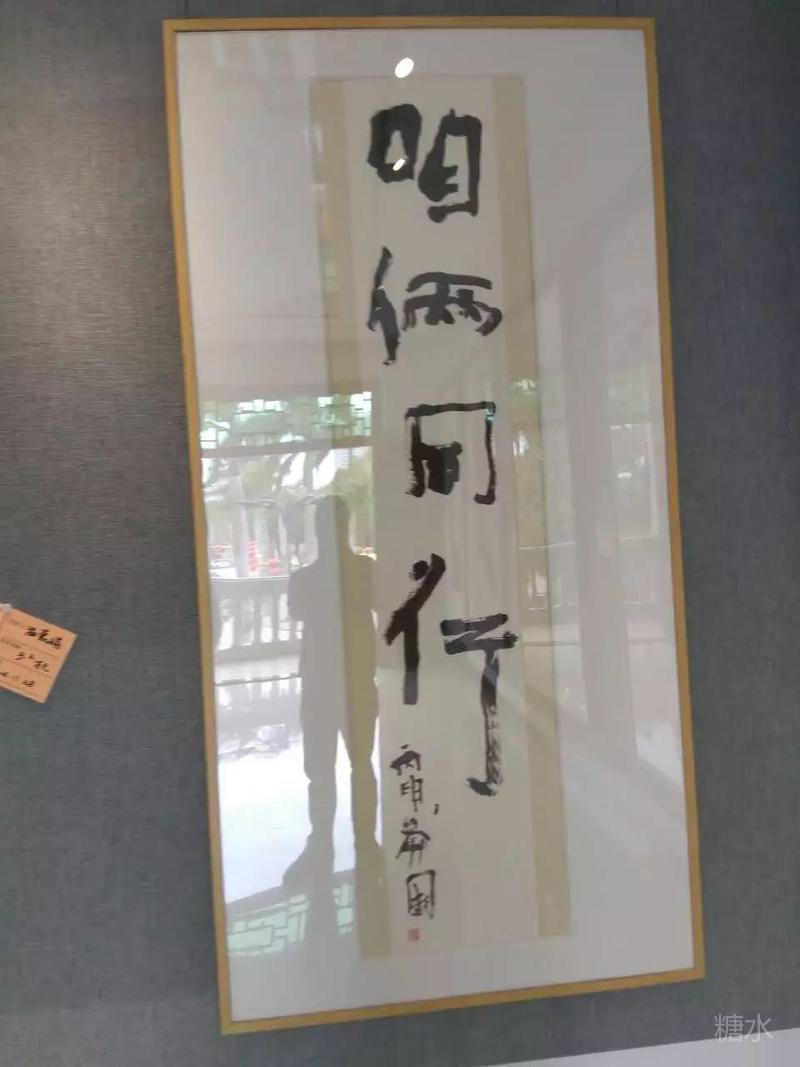 咱俩同行
丙申
糖水